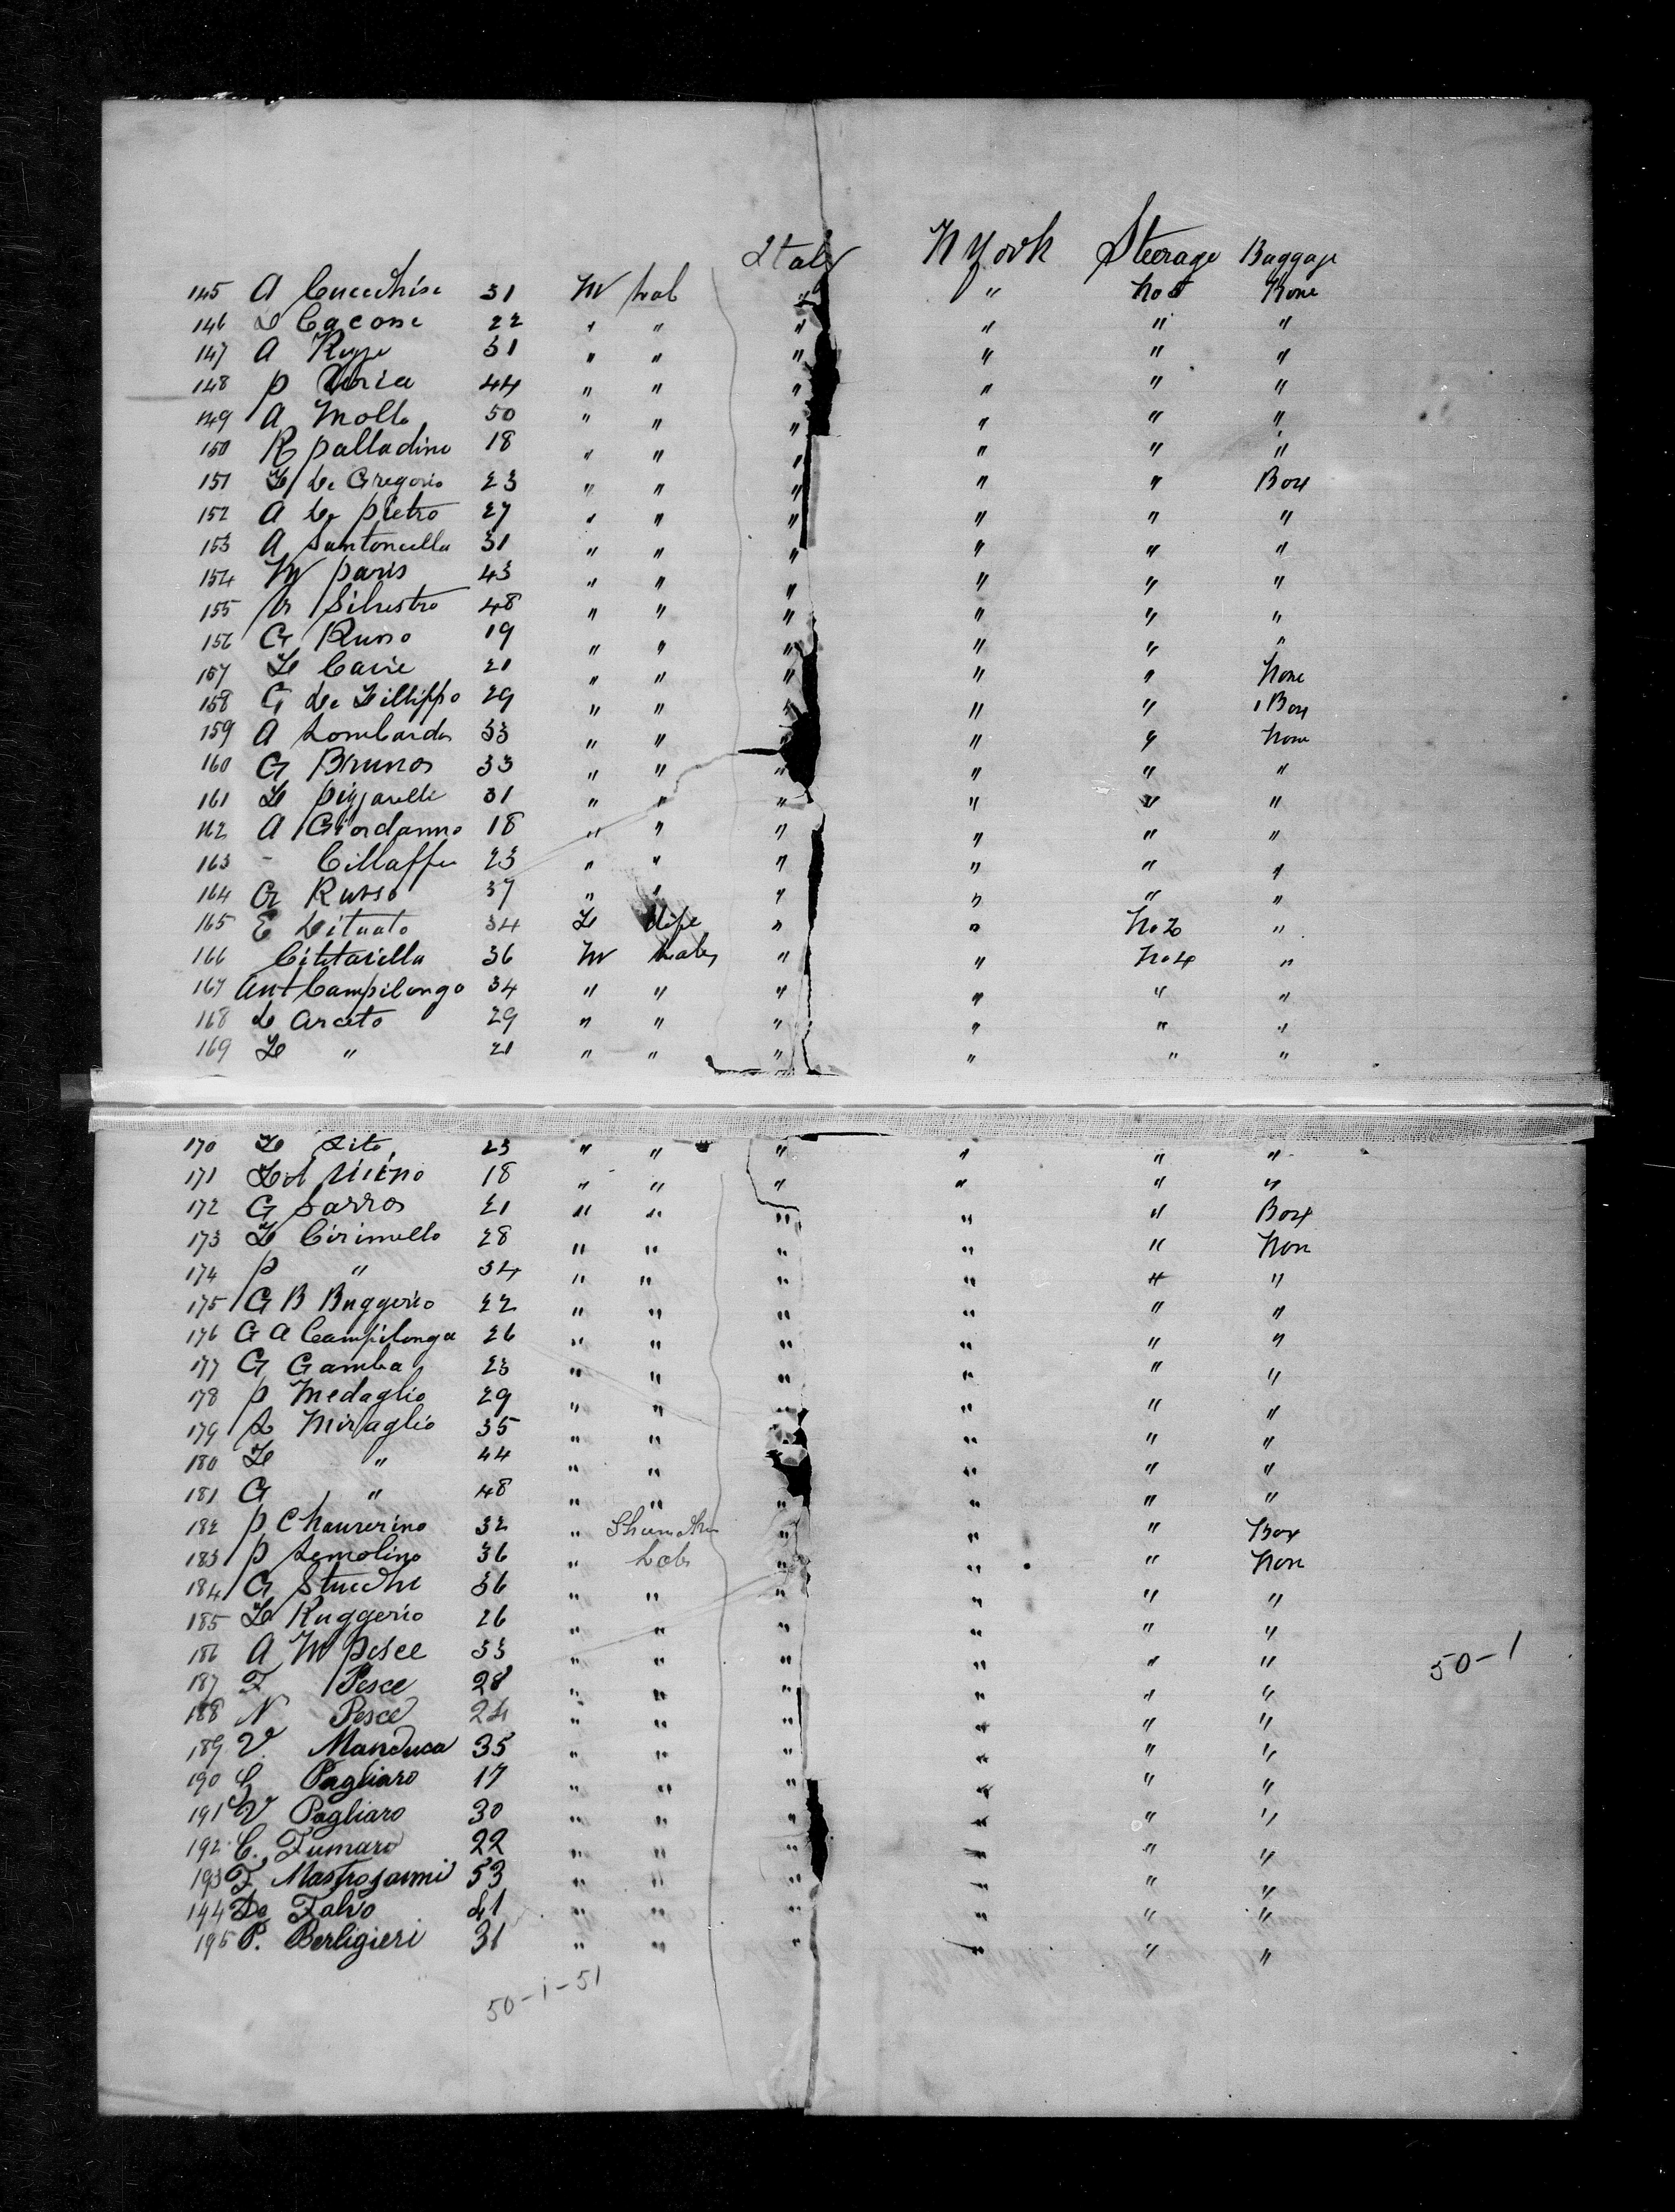 Italy N York Steerage Baggage
145 A 31 M Lab " " No 5 None
146 22 " " " " " "
147 A 31 " " " " " "
148 P 44 " " " " " "
149 A Mollo 50 " " " " " "
150 R Palladino 18 " " " " " "
151 F De Gregorio 23 " " " " " Box
152 A De Pietro 27 " " " " " "
153 A Santoncella 31 " " " " " "
154 M Paris 43 " " " " " "
155 Silvestro 48 " " " " " "
156 G Russo 19 " " " " " "
157 F 21 " " " " " None
158 G De Fillippo 29 " " " " " 1 Box
159 A Lombardo 33 " " " " " None
160 G Bruno 33 " " " " " "
161 F Pizzarelli 31 " " " " " "
162 A Giordanno 18 " " " " " "
163 - 23 " " " " " "
164 G Russo 37 " " " " " "
165 E 34 F Wife " " No 2 "
166 Cittariella 36 M Lab " " No 4 "
167 Ant Campilongo 34 " " " " " "
168 Arceto 29 " " " " " "
169 F " 21 " " " " " "
170 F Lito 23 " " " " " "
171 18 " " " " " "
172 G Sarro 21 " " " " " Box
173 F Cirimello 28 " " " " " None
174 P " 34 " " " " " "
175 G B Buggerio 22 " " " " " "
176 G A Campilonga 26 " " " " " "
177 G Gamba 23 " " " " " "
178 P Medaglio 29 " " " " " "
179 Miraglio 35 " " " " " "
180 F " 44 " " " " " "
181 G " 48 " " " " " "
182 P 32 " " " " Box
183 P Semolino 36 " Lab " " " None
184 G 36 " " " " " "
185 F Ruggerio 26 " " " " " "
186 A M Pesce 33 " " " " " "
50-1
187 F Pesce 28 " " " " " "
188 N Pesce 24 " " " " " "
189 V. Manduca 35 " " " " " "
190 G Pagliaro 17 " " " " " "
191 V Pagliaro 30 " " " " " "
192 C. Fumaro 22 " " " " " "
193 F Mastrojanni 53 " " " " " "
144 De Falvo 41 " " " " " "
195 P. Berligieri 31 " " " " " "
50-1-51